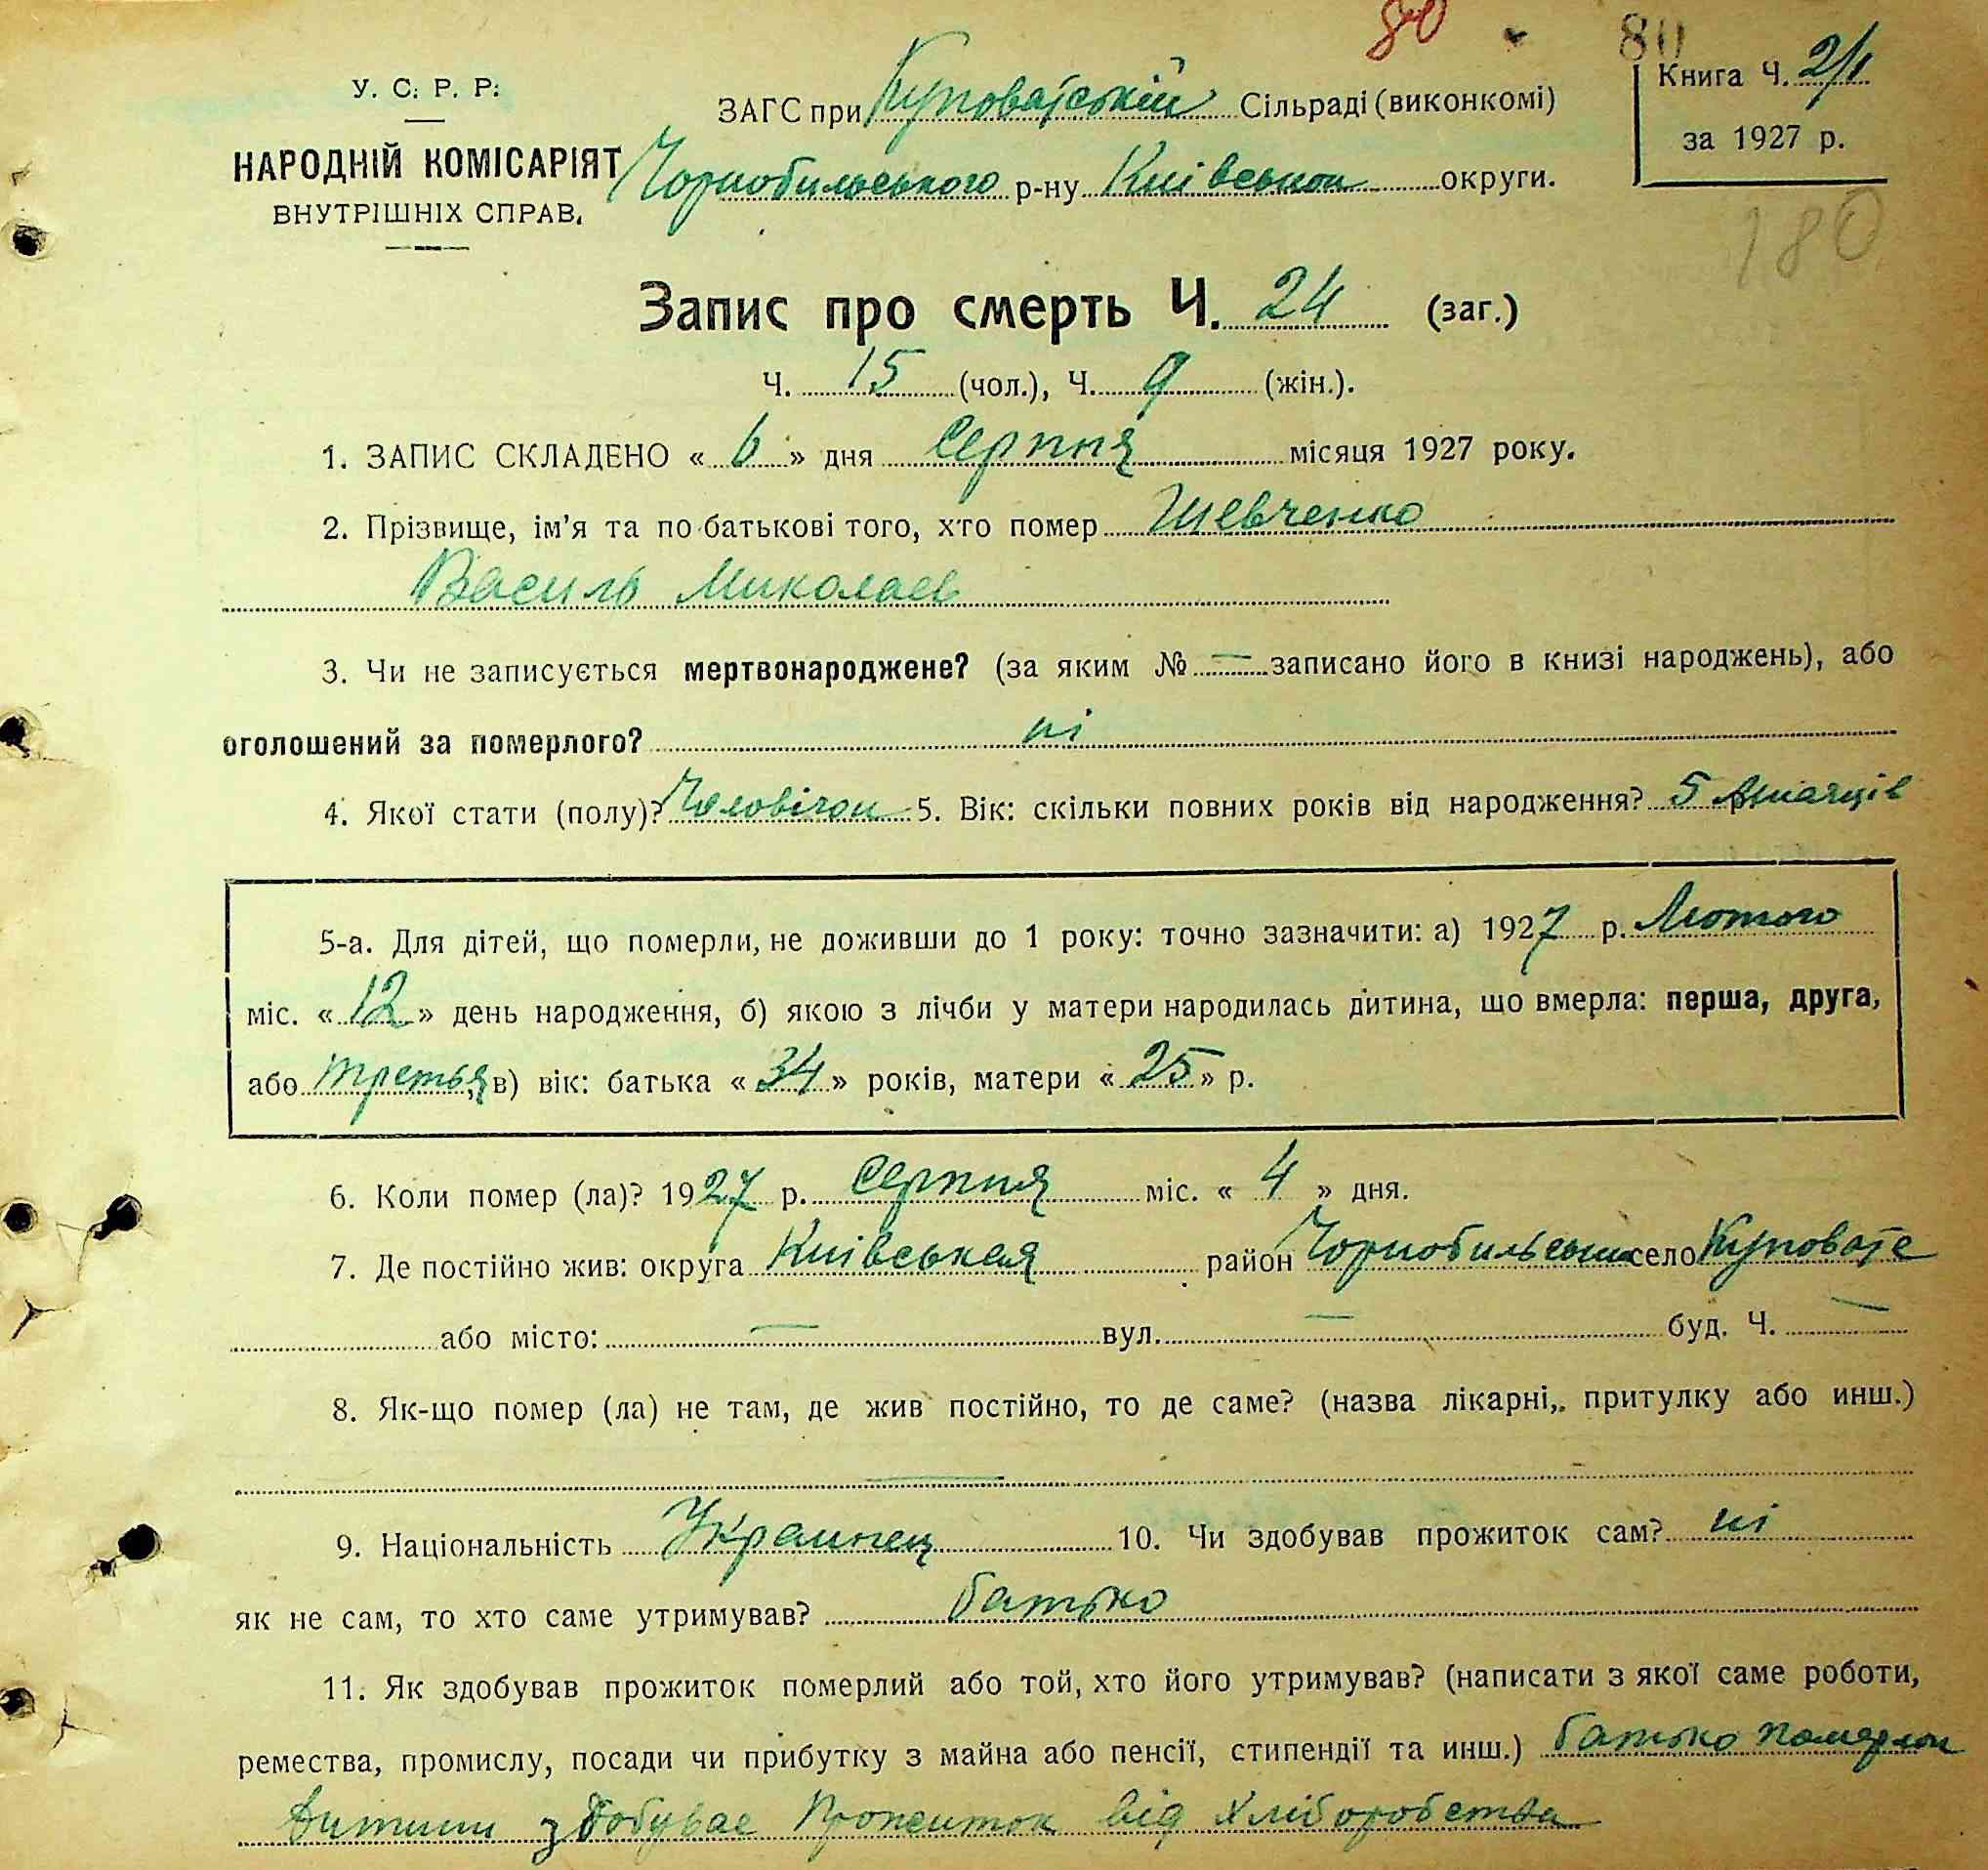 80
80
У. С. Р. Р.
НАРОДНІЙ КОМІСАРІЯТ
ВНУТРІШНІХ СПРАВ.
ЗАГС при Куповатській Сільраді (виконкомі)
Чорнобильського р-ну Київської округи.
Книга Ч. 2/1
за 1927 р.
180
Запис про смерть Ч. 24 (заг.)
Ч. 15 (чол.), Ч. 9 (жін.).
1. ЗАПИС СКЛАДЕНО « 6 » дня Серпня місяця 1927 року.
2. Прізвище, ім'я та по батькові того, хто помер Шевченко
Василь Миколаев
3. Чи не записується мертвонароджене? (за яким № — записано його в книзі народжень), або
оголошений за померлого? ні
4. Якої стати (полу)? Чоловічої 5. Вік: скільки повних років від народження? 5
5-а. Для дітей, що померли, не доживши до 1 року: точно зазначити: а) 1927 р. Лютого
міс. « 12 » день народження, б) якою з лічби у матери народилась дитина, що вмерла: перша, друга,
або третья, в) вік: батька « 34 » років, матери « 25 » р.
6. Коли помер (ла)? 1927 р. Серпня міс. « 4 » дня.
7. Де постійно жив: округа Київська район Чорнобильськи село Куповате
або місто: — вул. — буд. Ч. —
8. Як-що помер (ла) не там, де жив постійно, то де саме? (назва лікарні,. притулку або инш.)
—
9. Національність Украинец 10. Чи здобував прожиток сам? ні
як не сам, то хто саме утримував? батько
11. Як здобував прожиток померлий або той, хто його утримував? (написати з якої саме роботи,
ремества, промислу, посади чи прибутку з майна або пенсії, стипендії та инш.) батько помэрлои
дитини здобувае прожиток від хліборобства